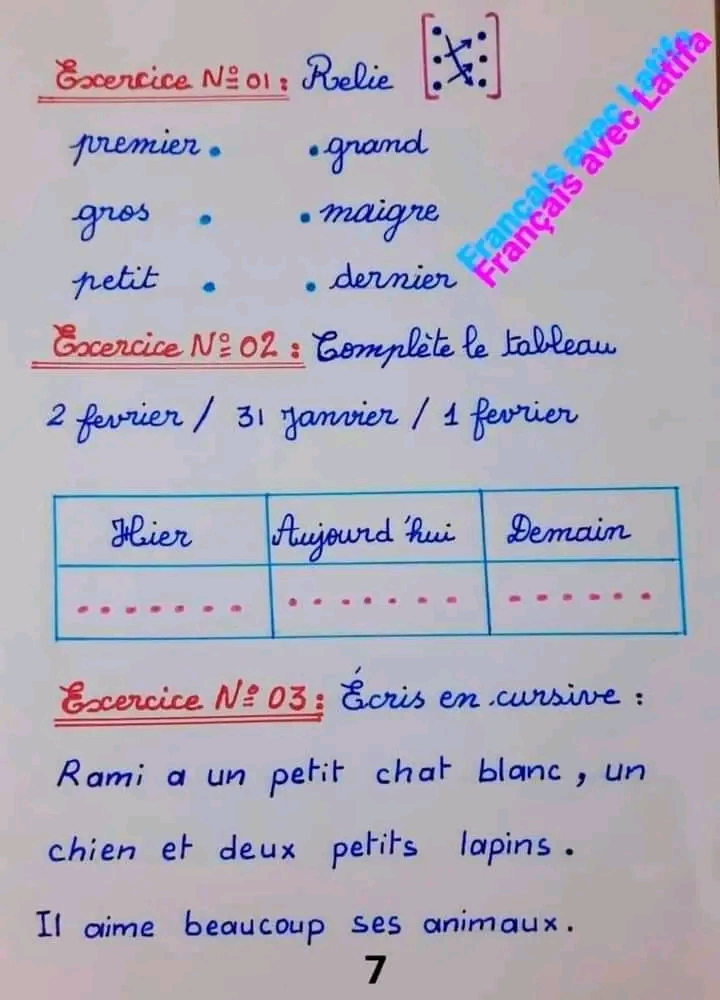 Excercice N° 01 : Relie
Français avec Latifa
Français avec Latifa
premier . . grand
gros . . maigre
petit . . dernier
Excercice N° 02 : Complète le tableau
2 fevrier / 31 Janvier / 1 fevrier
Hier Aujourd'hui Demain
....... ....... ......
Excercice N° 03 : Écris en cursive :
Rami a un petit chat blanc, un
chien et deux petits lapins.
Il aime beaucoup ses animaux.
7